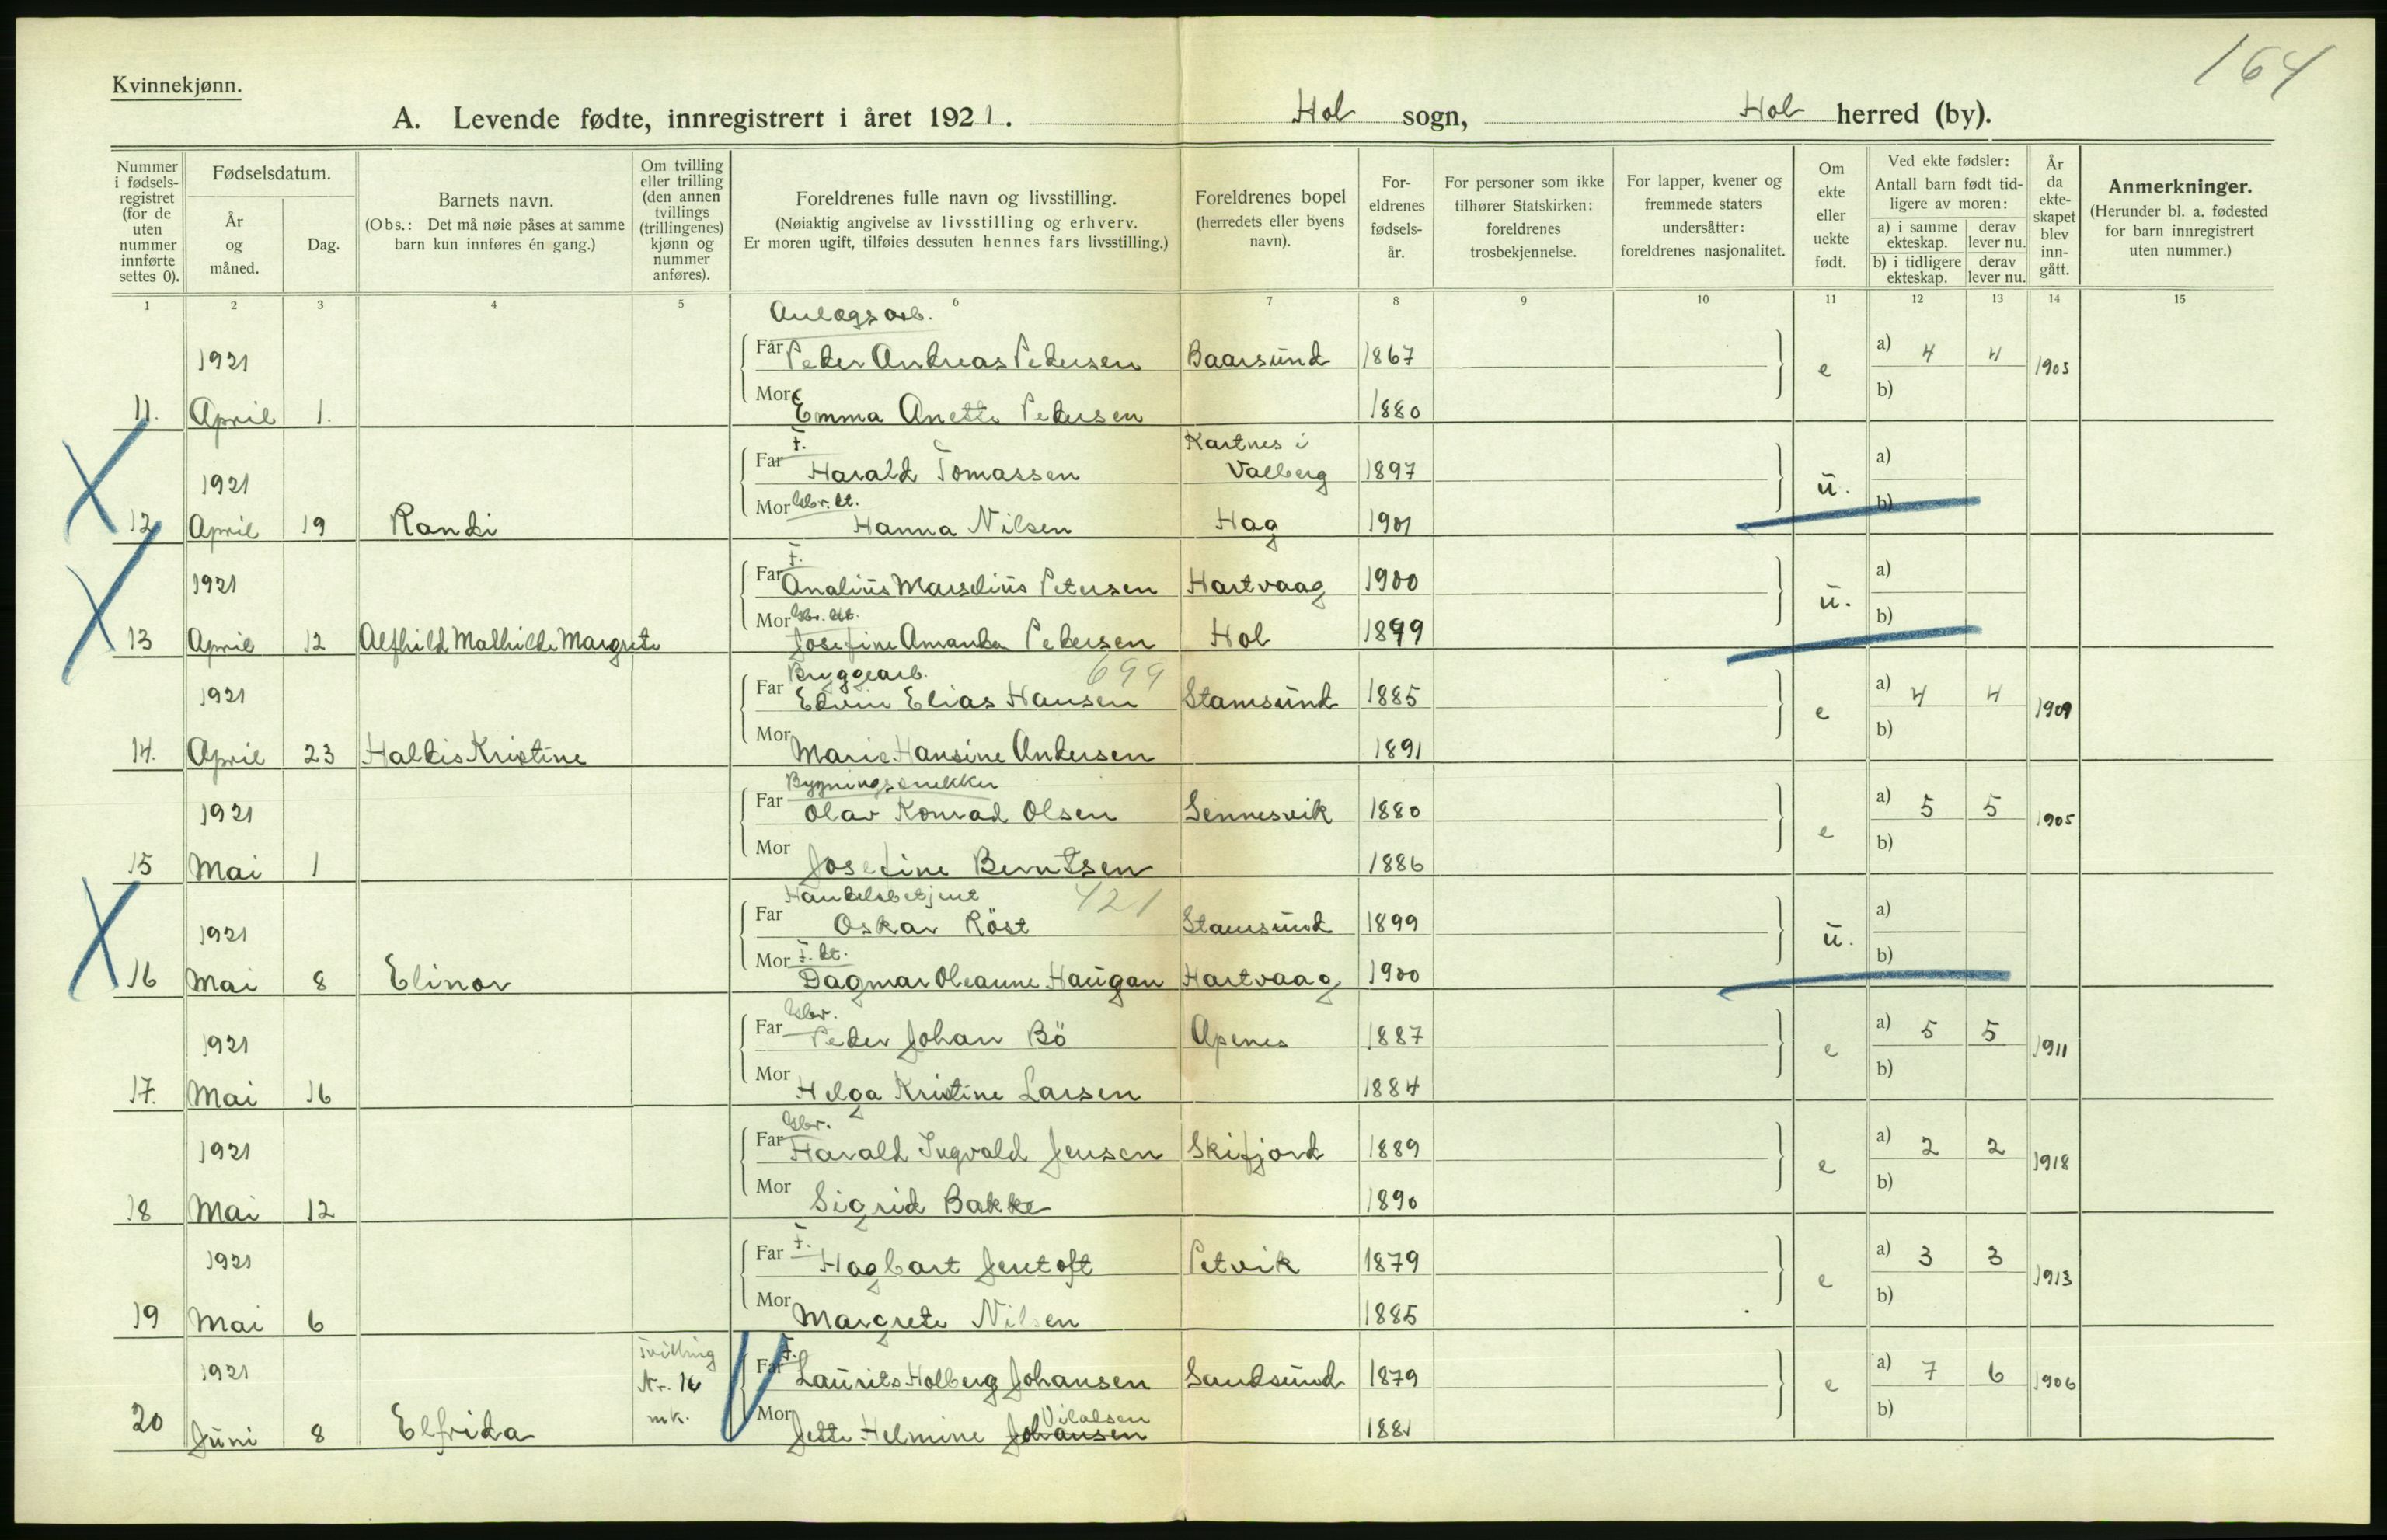 164
Kvinnekjønn.
A. Levende fødte, innregistrert i året 1921. Hol sogn, Hol herred (by).
Nummer i fødselsregistret (for de uten nummer innførte settes 0).
Fødselsdatum.
År og måned.
Dag.
Barnets navn.
(Obs.: Det må nøie påses at samme barn kun innføres én gang.)
Om tvilling eller trilling (den annen tvillings (trillingenes) kjønn og nummer anføres).
Foreldrenes fulle navn og livsstilling.
(Nøiaktig angivelse av livsstilling og erhverv.
Er moren ugift, tilføies dessuten hennes fars livsstilling.)
Foreldrenes bopel (herredets eller byens navn).
Foreldrenes fødselsår.
For personer som ikke tilhører Statskirken: foreldrenes trosbekjennelse.
For lapper, kvener og fremmede staters undersåtter: foreldrenes nasjonalitet.
Om ekte eller uekte født.
Ved ekte fødsler: Antall barn født tidligere av moren:
a) i samme ekteskap. derav lever nu.
b) i tidligere ekteskap. derav lever nu.
År da ekteskapet blev inngått.
Anmerkninger.
(Herunder bl. a. fødested for barn innregistrert uten nummer.)
1 2 3 4 5 6 7 8 9 10 11 12 13 14 15
Anlægsarb.
1921 Far Peder Andreas Pedersen Baarsund 1867 e a) 4 4 1905
11. April 1. Mor Emma Anette Pedersen 1880 b)
F. Kartnes i
1921 Far Harald Tomassen Valberg 1897 u. a)
Gbr. dt.
12 April 19 Randi Mor Hanna Nilsen Hag 1901 b)
F.
1921 Far Analius Marselius Petersen Hartvaag 1900 u. a)
Gbr. dt.
13 April 12 Alfhild Mathilde Margrete Mor Josefine Amanda Pedersen Hol 1899 b)
Bryggearb. 699
1921 Far Edvin Elias Hansen Stamsund 1885 e a) 4 4 1909
14. April 23 Haldis Kristine Mor Marie Hansine Andersen 1891 b)
Bygningssnekker
1921 Far Olav Konrad Olsen Sennesvik 1880 e a) 5 5 1905
15 Mai 1 Mor Josefine Berntsen 1886 b)
Handelsbetjent 421
1921 Far Oskar Röst Stamsund 1899 u. a)
F. dt.
16 Mai 8 Elinor Mor Dagmar Oleanne Haugan Hartvaag 1900 b)
Gbr.
1921 Far Peder Johan Bö Apenes 1887 e a) 5 5 1911
17. Mai 16 Mor Helga Kristine Larsen 1884 b)
Gbr.
1921 Far Harald Ingvald Jensen Skifjord 1889 e a) 2 2 1918
18 Mai 12 Mor Sigrid Bakke 1890 b)
F.
1921 Far Hagbart Jentoft Petvik 1879 e a) 3 3 1913
19 Mai 6 Mor Margrete Nilsen 1885 b)
Tvilling F.
1921 Nr. 16 Far Laurits Holberg Johansen Sandsund 1879 e a) 7 6 1906
20 Juni 8 Elfrida mk. Mor Jette Helmine Johansen 1881 b)